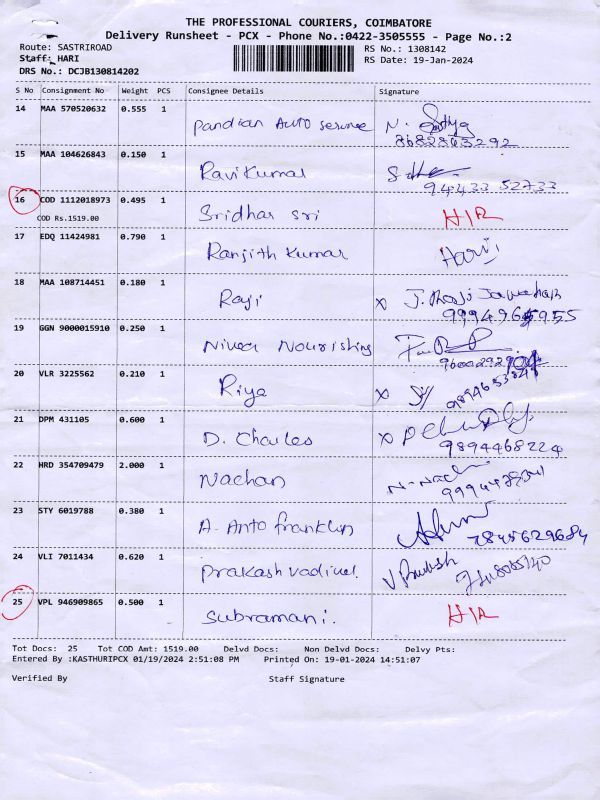 THE PROFESSIONAL COURIERS, COIMBATORE
Delivery Runsheet - PCX - Phone No.:0422-3505555 - Page No.:2
Route: SASTRIROAD RS No.: 1308142
Staff: HARI RS Date: 19-Jan-2024
DRS No.: DCJB130814202
S No Consignment No Weight PCS Consignee Details Signature
14 MAA 570520632 0.555 1 Pandian Auto service N.
8682863292
15 MAA 104626843 0.150 1 Ravikumar
94433 52733
16 COD 1112018973 0.495 1 Sridhar sri H/R
COD Rs.1519.00
17 EDQ 11424981 0.790 1 Ranjith Kumar Hariji
18 MAA 108714451 0.180 1 Raji x J.
19 GGN 9000015910 0.250 1 Nivea Nourishing
20 VLR 3225562 0.210 1 Riya x
21 DPM 431105 0.600 1 D. Charles x
9894468224
22 HRD 354709479 2.000 1 Nachan
23 STY 6019788 0.380 1 A. Anto franklin
7845629684
24 VLI 7011434 0.620 1 Prakash vadivel
25 VPL 946909865 0.500 1 Subramani. H/R
Tot Docs: 25 Tot COD Amt: 1519.00 Delvd Docs: Non Delvd Docs: Delvy Pts:
Entered By :KASTHURIPCX 01/19/2024 2:51:08 PM Printed On: 19-01-2024 14:51:07
Verified By Staff Signature